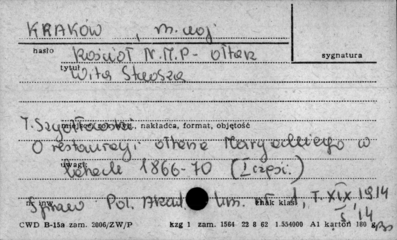 KRAKÓW, m. woj
hasło Kościół N.M.P. - ołtarz
sygnatura
tytuł Wita Stwosza
nakładca, format, objętość
O restauracji ołtarza Maryackiego w
uwagi latach 1866-70 (I część.)
Spraw. Pol. Akad. Um. nr 1, T. XIX 1914
znak klas.
CWD B-15a zam. 2006/ZW/P kzg 1 zam. 1564 22 8 62 1.554000 A1 karton 180